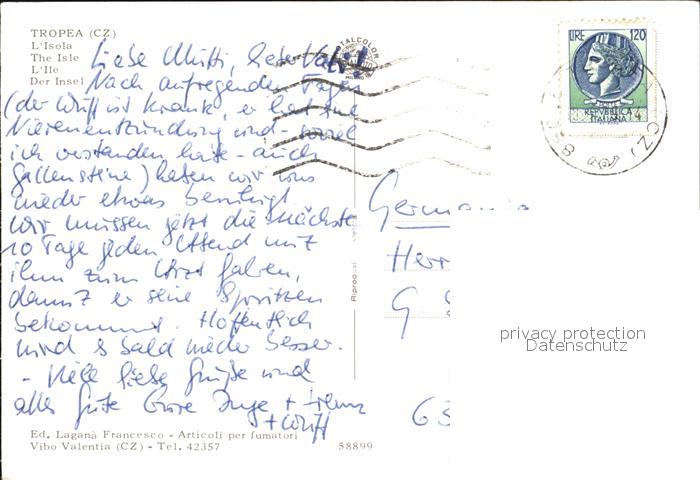 TROPEA (CZ)
L'Isola
The Isle
L'Ile
Der Insel
Liebe Mutti, lieber Vati!
Nach aufregenden Tagen
(der Wuff ist krank, er hat eine
Nierenentzündung und - soviel
ich verstanden habe - auch
Gallensteine) haben wir uns
wieder etwas beruhigt.
Wir müssen jetzt die nächste
10 Tage jeden Abend mit
ihm zum Arzt fahren,
damit er seine Spritzen
bekommt. Hoffentlich
wird es bald wieder besser.
- Viele liebe Grüße und
alles Gute Eure Inge +
+ Wuff
Ed. Laganà Francesco - Articoli per fumatori
Vibo Valentia (CZ) - Tel. 42357
58899
ITALCOLOR
Riproduz
LIRE 120
REPVBBLICA
ITALIANA
Germania
Herr
G
63
privacy protection
Datenschutz